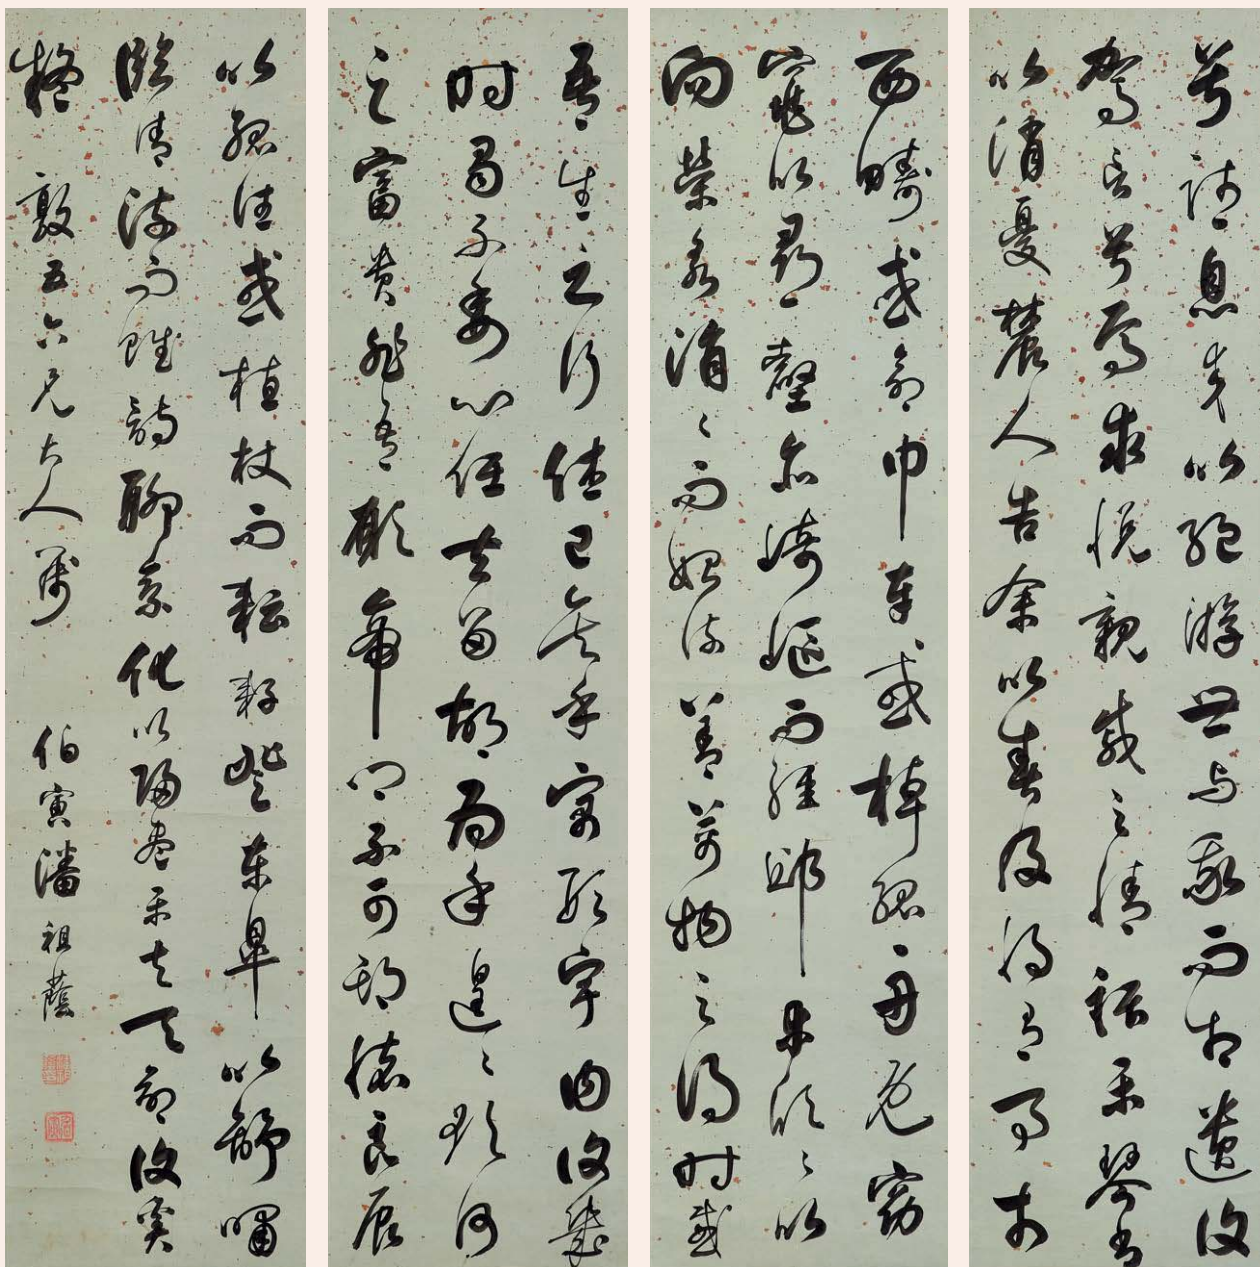 兮請息交以絕游世与我而相遺復
駕言兮焉求悅親戚之情話樂琴書
以消憂農人告余以春及將有事於
西疇或命巾車或棹孤舟既窈
窕以尋壑亦崎嶇而經邱木欣〻以
向榮泉涓〻而始流善萬物之得時感
吾生之行休已矣乎寓形宇內復幾
時曷不委心任去留胡為乎遑〻欲何
之富貴非吾願帝鄉不可期懷良辰
以孤往或植杖而耘耔登東皋以舒嘯
臨清流而賦詩聊乘化以歸盡樂夫天命復奚
疑 敦五六兄大人屬 伯寅潘祖蔭